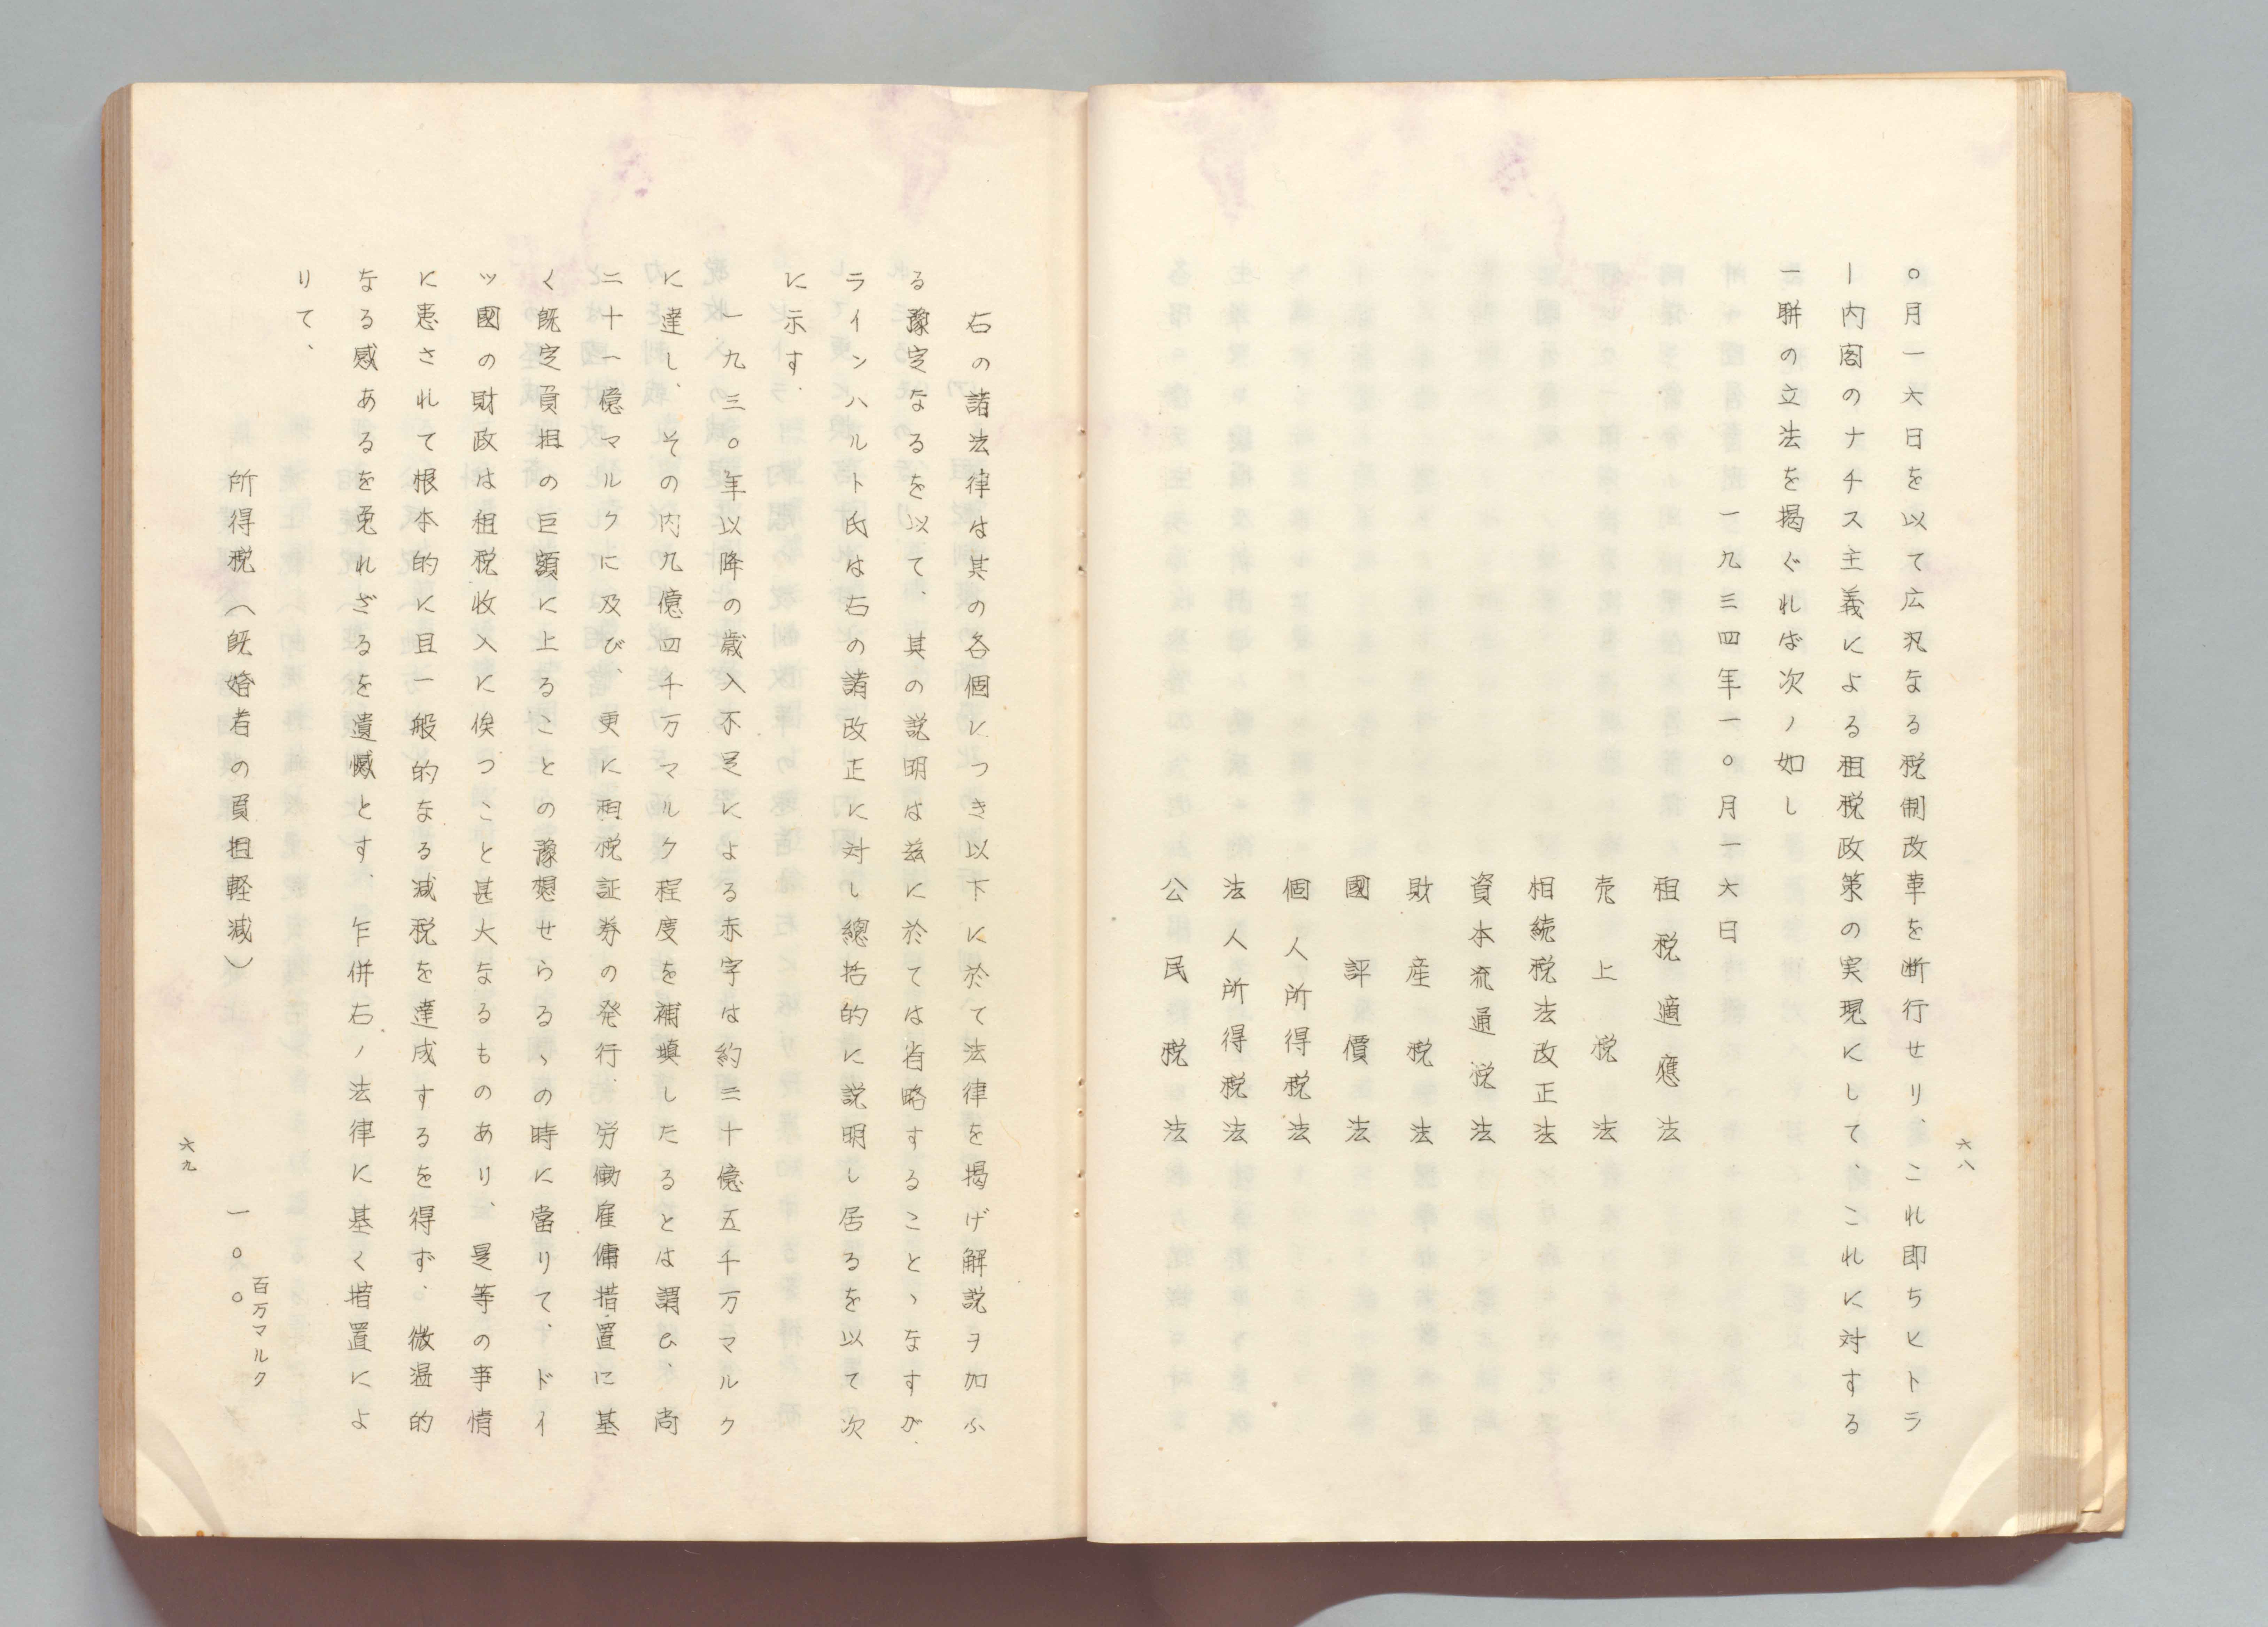 六八
〇月一六日を以て広汎なる税制改革を断行せり、これ即ちヒトラ
ー内閣のナチス主義による租税政策の実現にして、これに対する
一聨の立法を掲ぐれば次ノ如し
一九三四年一〇月一六日
租税適應法
売上税法
相続税法改正法
資本流通税法
財産税法
國評價法
個人所得税法
法人所得税法
公民税法
右の諸法律は其の各個につき以下に於て法律を掲げ解説ヲ加ふ
る豫定なるを以て、其の説明は玆に於ては省略することゝなすが、
ラインハルト氏は右の諸改正に対し總括的に説明し居るを以て次
に示す、
一九三〇年以降の歳入不足による赤字は約三十億五千万マルク
に達し、その内九億四千万マルク程度を補塡したるとは謂ひ、尚
二十一億マルクに及び、更に租税証券の発行、労働雇傭措置に基
く既定負担の巨額に上ることの豫想せらるゝの時に當りて、ドイ
ツ國の財政は租税收入に俟つこと甚大なるものあり、是等の事情
に患されて根本的に且一般的なる減税を達成するを得ず、微温的
なる感あるを免れざるを遺憾とす、乍併右ノ法律に基く措置によ
りて、
百万マルク
所得税（既婚者の負担軽減） 一〇〇
六九